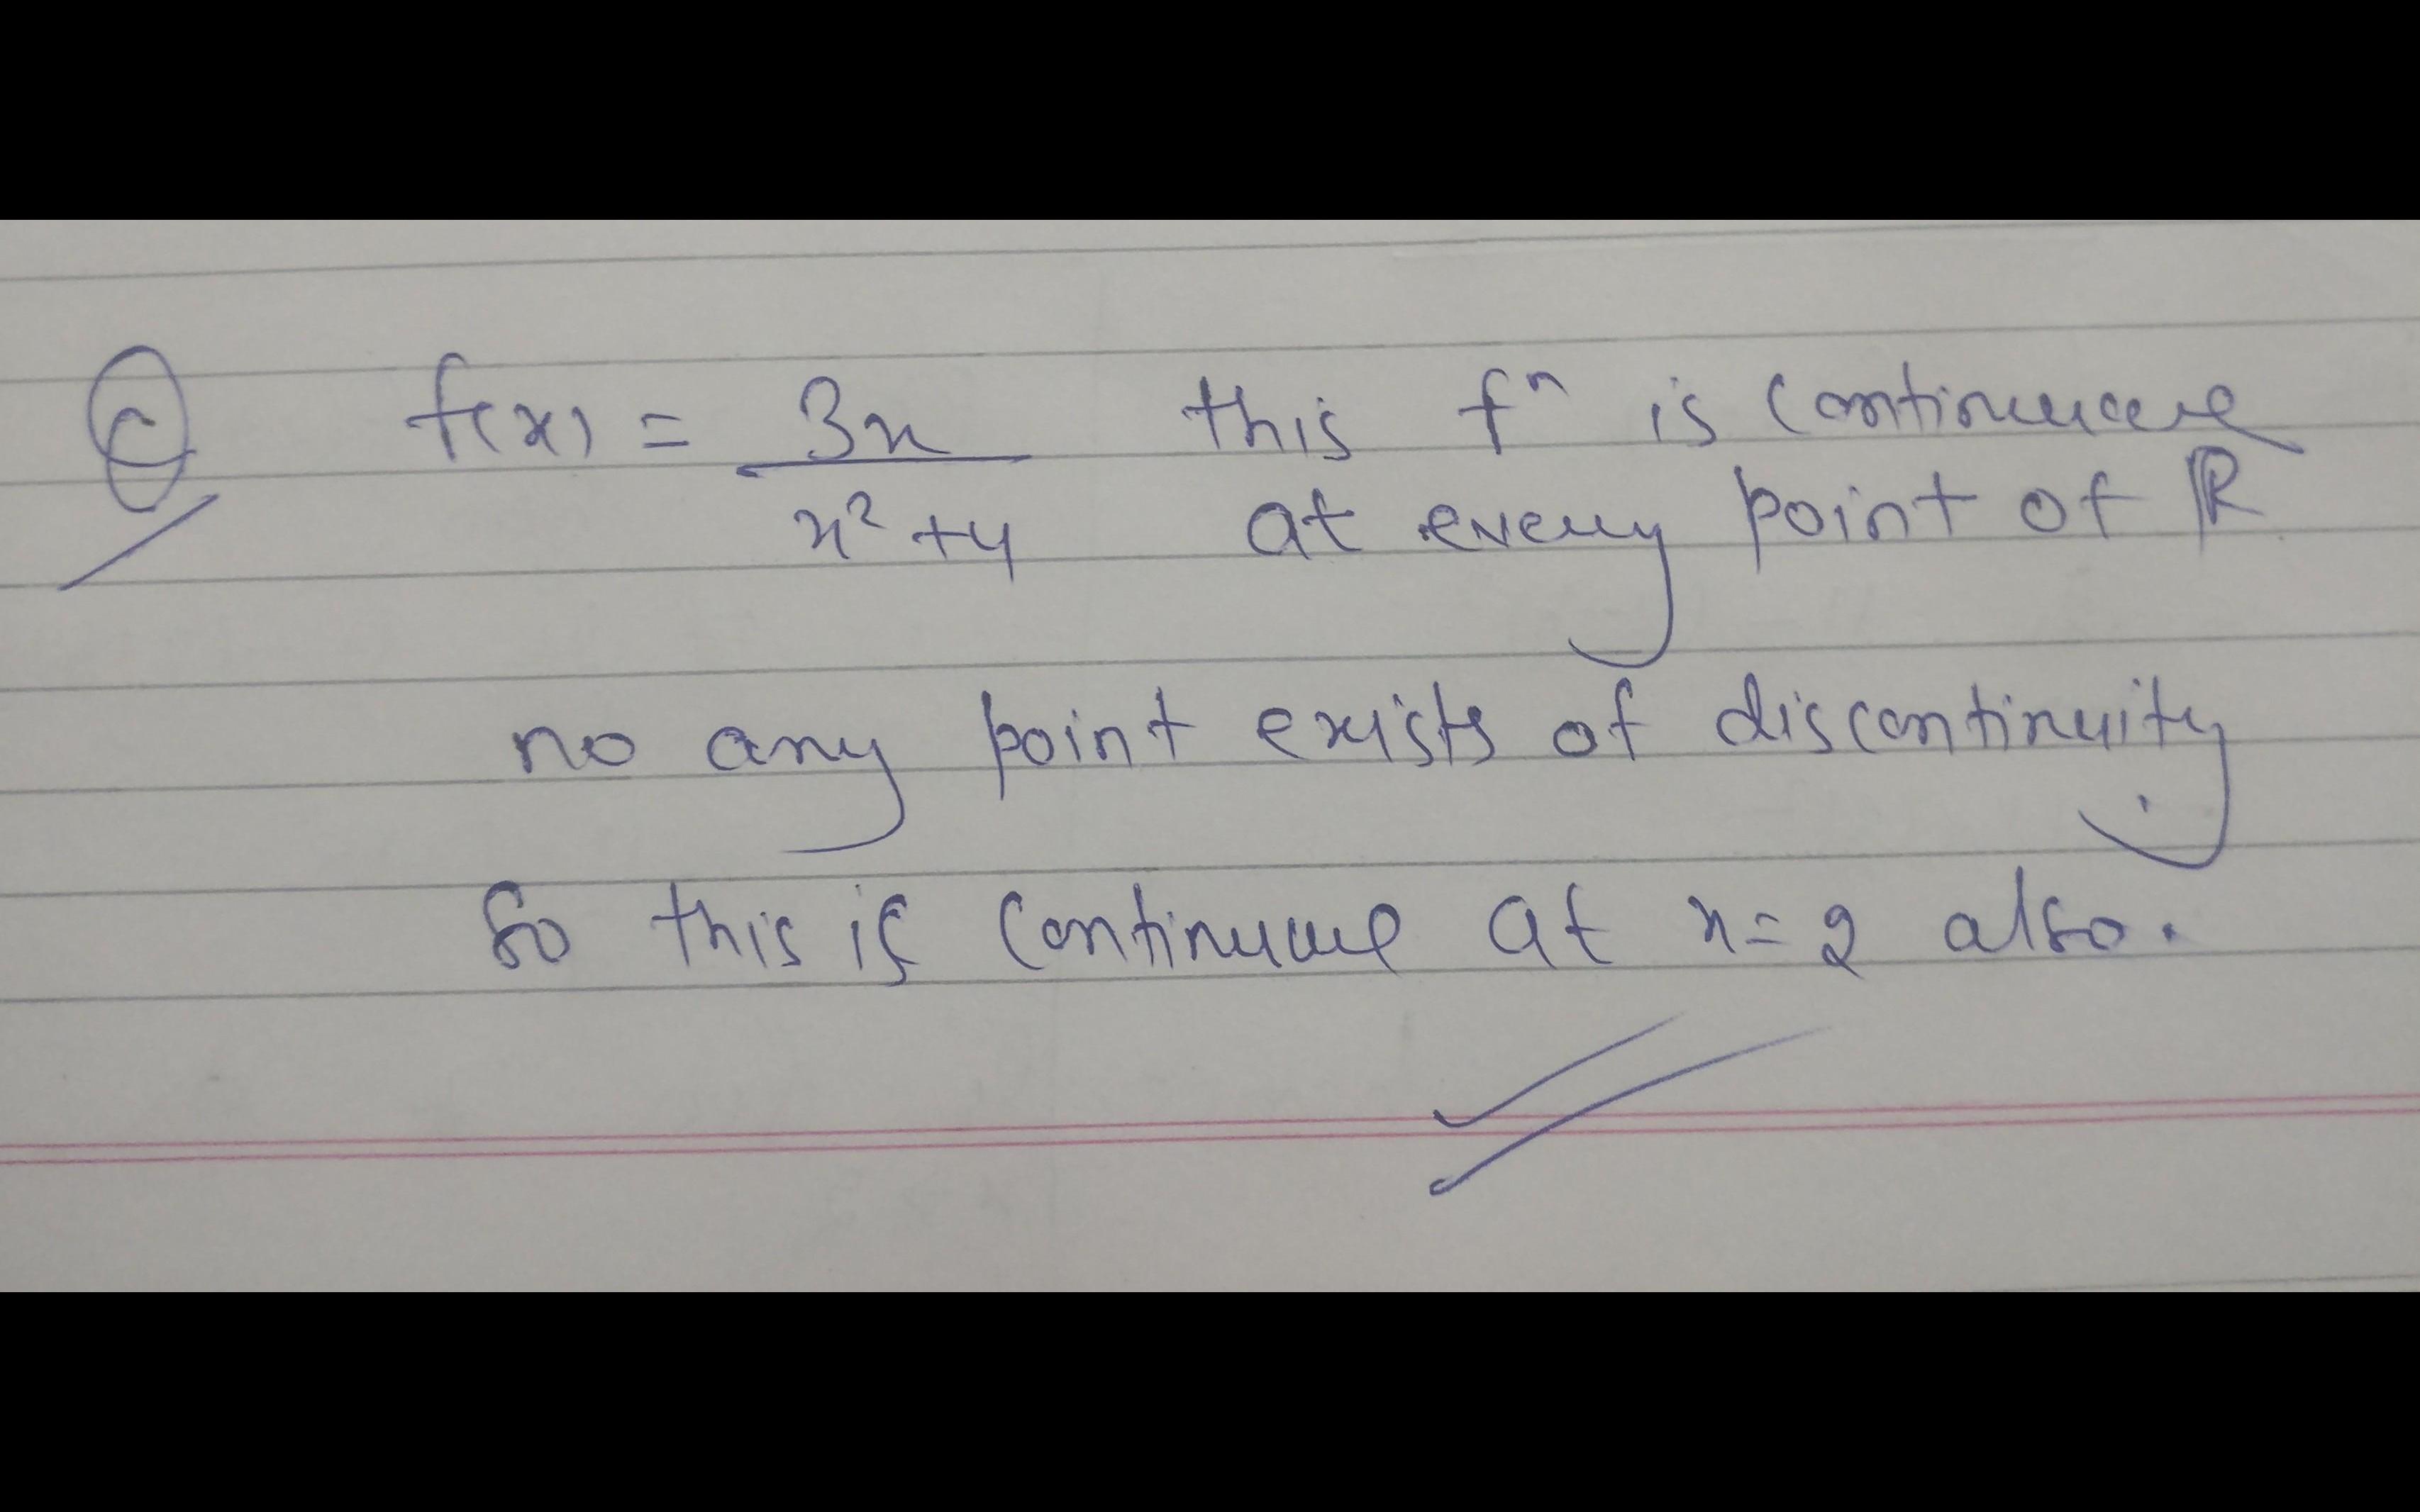 C f(x) = 3x / x² + 4 this fⁿ is continuous
at every point of ℝ
no any point exists of discontinuity
So this is continuous at x = 2 also.